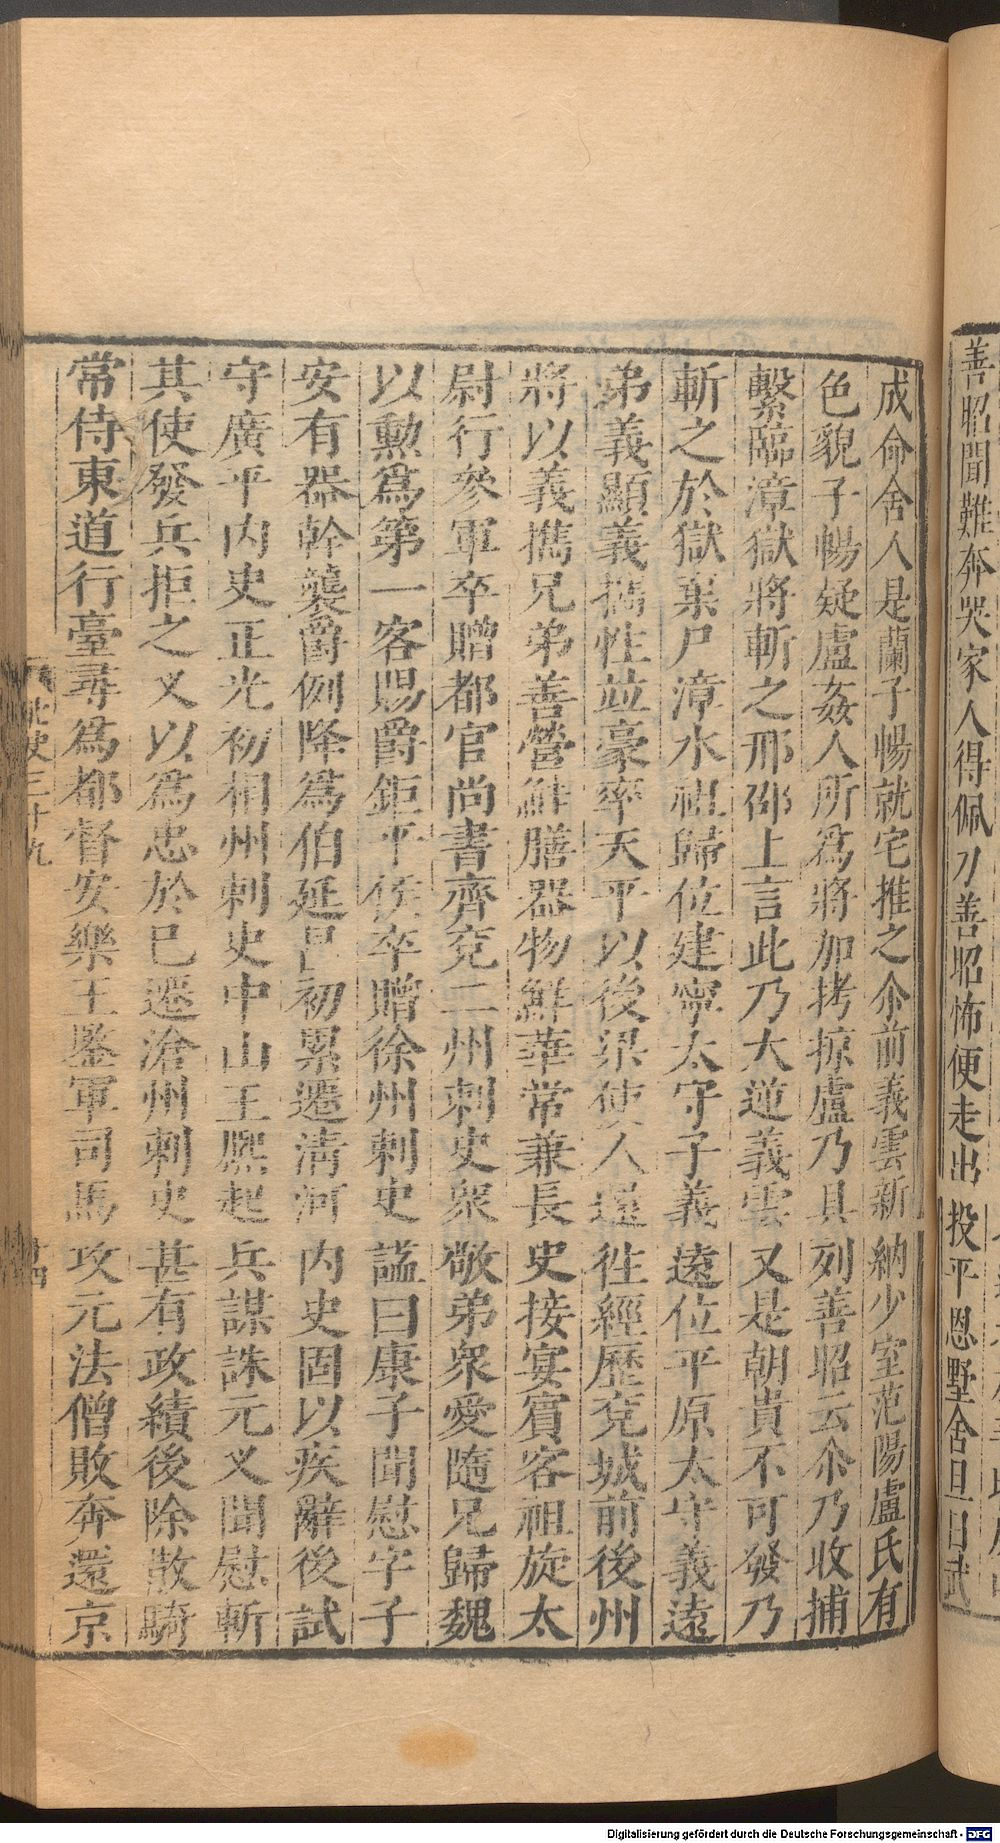 善昭聞難奔哭家人得佩刀善昭怖便走出投平恩墅舍旦日武
成命舍人是蘭子暢就宅推之尒前義雲新納少室范陽盧氏有
色貌子暢疑盧姦人所爲將加拷掠盧乃具列善昭云尒乃收捕
繫臨漳獄將斬之邢邵上言此乃大逆義雲又是朝貴不可發乃
斬之於獄棄尸漳水祖歸位建寧太守子義遠位平原太守義遠
弟義顯義攜性並豪率天平以後梁使人還徃經歷兗城前後州
將以義攜兄弟善營鮭膳器物鮮華常兼長史接宴賓客祖旋太
尉行參軍卒贈都官尚書齊兗二州刺史衆敬弟衆愛隨兄歸魏
以勲爲第一客賜爵鉅平侯卒贈徐州刺史謚曰康子聞慰字子
安有器幹襲爵例降爲伯延昌初累遷清河内史固以疾辭後試
守廣平内史正光初相州刺史中山王熈起兵謀誅元乂聞慰斬
其使發兵拒之乂以爲忠於已遷滄州刺史甚有政績後除散騎
常侍東道行臺尋爲都督安樂王鑒軍司馬攻元法僧敗奔還京
北史三十九
Digitalisierung gefördert durch die Deutsche Forschungsgemeinschaft - DFG